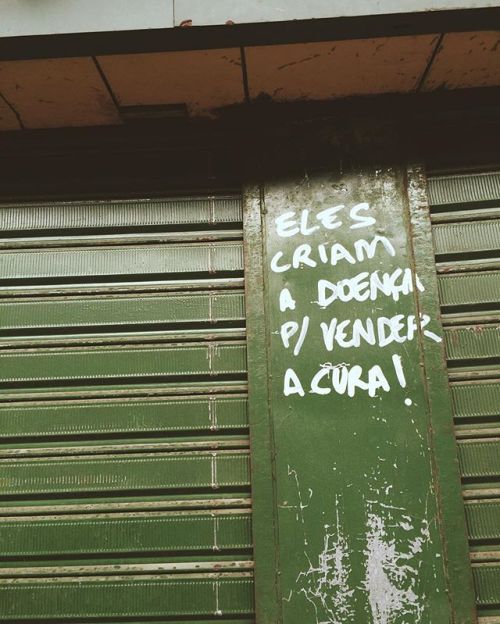 ELES
CRIAM
A DOENÇA
P/ VENDER
A CURA!